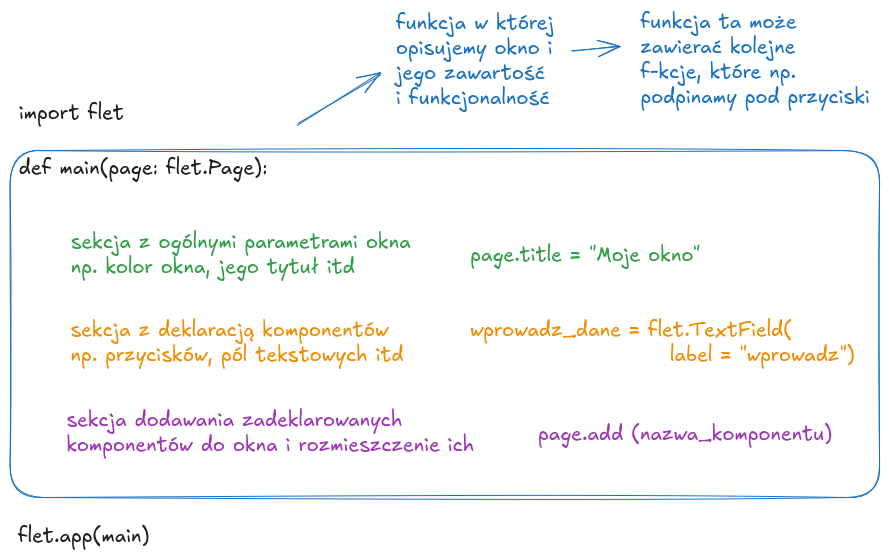 funkcja w której
opisujemy okno i
jego zawartość
i funkcjonalność
funkcja ta może
zawierać kolejne
f-kcje, które np.
podpinamy pod przyciski
import flet
def main(page: flet.Page):
sekcja z ogólnymi parametrami okna
np. kolor okna, jego tytuł itd
page.title = "Moje okno"
sekcja z deklaracją komponentów
np. przycisków, pól tekstowych itd
wprowadz_dane = flet.TextField(
label = "wprowadz")
sekcja dodawania zadeklarowanych
komponentów do okna i rozmieszczenie ich
page.add (nazwa_komponentu)
flet.app(main)